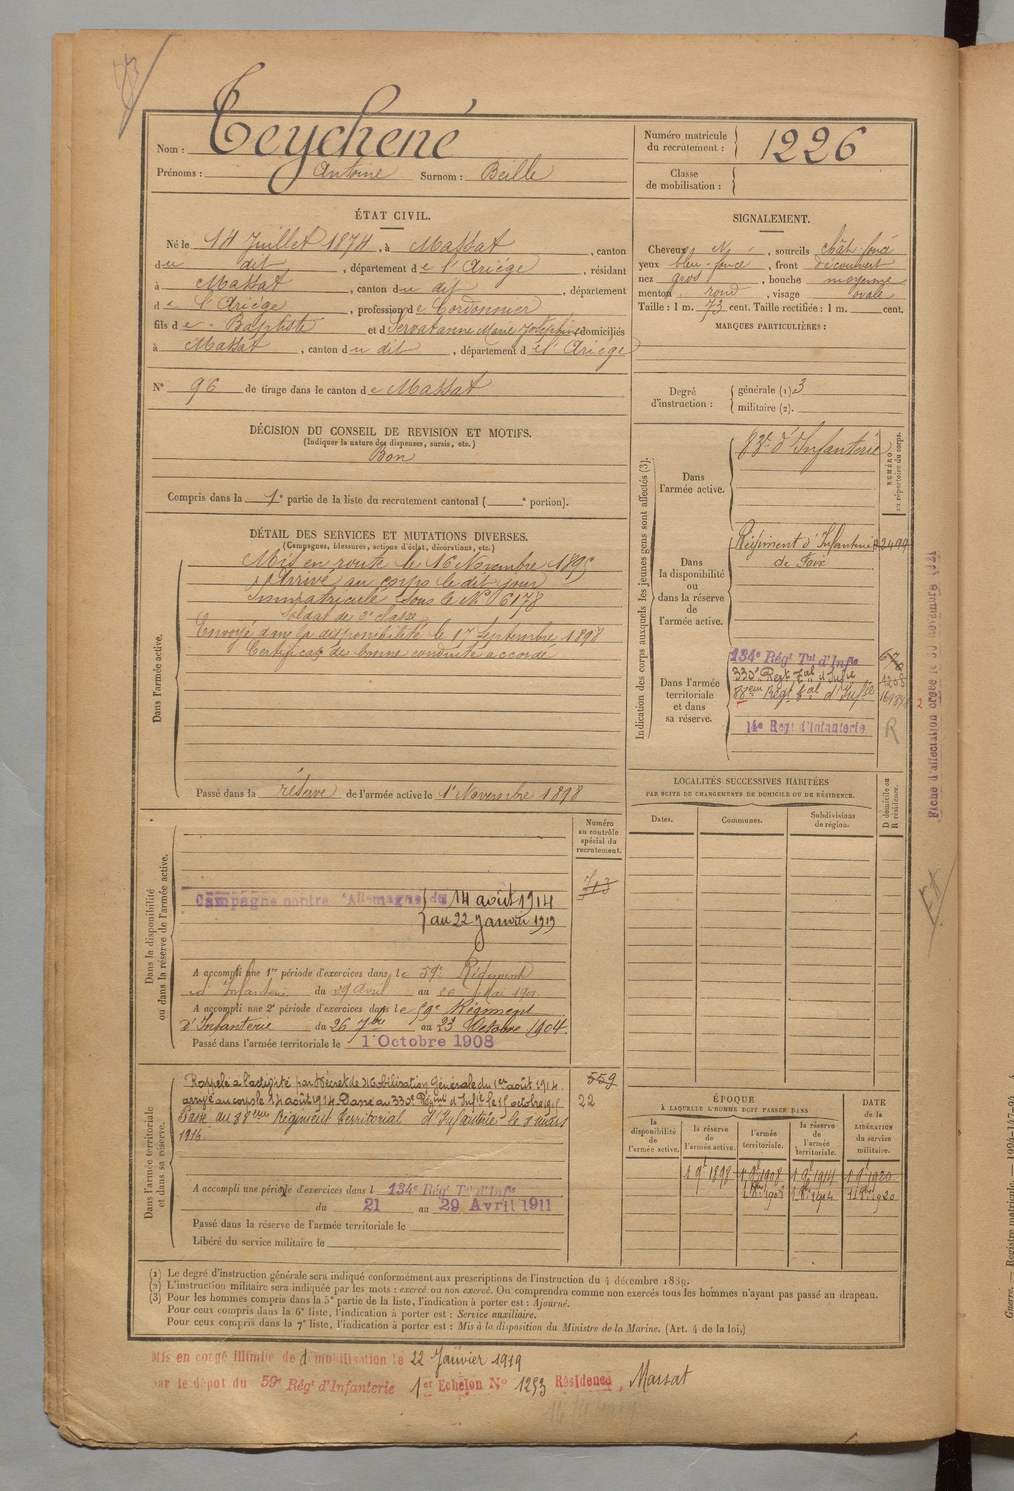 Nom : Teychené
Prénoms : Antoine Surnom : Beille
Numéro matricule du recrutement : 1226
Classe de mobilisation :
ÉTAT CIVIL.
Né le 14 Juillet 1874, à Massat, canton
du dit, département de l'Ariége, résidant
à Massat, canton du dit, département
de l'Ariége, profession de Cordonnier
fils de Baptiste et d Servat Anne Marie Joséphine domiciliés
à Massat, canton du dit, département de l'Ariége
N° 96 de tirage dans le canton de Massat
SIGNALEMENT.
Cheveux N, sourcils chât. foncé
yeux bleu-foncé, front découvert
nez gros, bouche moyenne
menton rond, visage ovale
Taille : 1 m. 73 cent. Taille rectifiée : 1 m. cent.
MARQUES PARTICULIÈRES :
Degré d'instruction : générale (1). 3
militaire (2).
DÉCISION DU CONSEIL DE REVISION ET MOTIFS.
(Indiquer la nature des dispenses, sursis, etc.)
Bon
Compris dans la 1e partie de la liste du recrutement cantonal ( e portion).
DÉTAIL DES SERVICES ET MUTATIONS DIVERSES.
(Campagnes, blessures, actions d'éclat, décorations, etc.)
Dans l'armée active.
Mis en route le 16 Novembre 1895
Arrivé au corps le dit jour
Immatriculé sous le N° 6178
Soldat de 2e classe
Envoyé dans la disponibilité le 17 Septembre 1898
Certificat de bonne conduite accordé
Passé dans la réserve de l'armée active le 1r Novembre 1898
Indication des corps auxquels les jeunes gens sont affectés (3).
NUMÉRO au répertoire du corps.
Dans l'armée active.
83e d'Infanterie
Dans la disponibilité ou dans la réserve de l'armée active.
Régiment d'Infanterie 2499
de Foix
Dans l'armée territoriale et dans sa réserve.
134e Régt Tal d'Infie
330e Régt Tal d'Infie 1208
88eme Régt Tal d'Infie
14e Regt d'Infanterie R
LOCALITÉS SUCCESSIVES HABITÉES
PAR SUITE DE CHANGEMENTS DE DOMICILE OU DE RÉSIDENCE.
Dates. Communes. Subdivisions de région. D domicile ou R résidence.
Dans la disponibilité ou dans la réserve de l'armée active.
Numéro au contrôle spécial du recrutement.
713
Campagne contre l'Allemagne du 14 août 1914
au 22 Janvier 1919
A accompli une 1re période d'exercices dans le 59e Régiment
d'Infanterie du 29 Avril au 26 Mai 1901
A accompli une 2e période d'exercices dans le 59e Régiment
d'Infanterie du 26 7bre au 23 Octobre 1904
Passé dans l'armée territoriale le 1 Octobre 1908
Dans l'armée territoriale et dans sa réserve.
559
22
Rappelé à l'activité par Décret de Mobilisation Générale du 1er août 1914.
arrivé au corps le 14 août 1914. Passé au 330e Régiment d'Infie le 15 octobre 1915
Passé au 88eme Régiment Territorial d'Infanterie le 1 mars
1916
A accompli une période d'exercices dans l 134e Régt Tal d'Infie
du 21 au 29 Avril 1911
Passé dans la réserve de l'armée territoriale le
Libéré du service militaire le
ÉPOQUE
À LAQUELLE L'HOMME DOIT PASSER DANS
la disponibilité de l'armée active. la réserve de l'armée active. l'armée territoriale. la réserve de l'armée territoriale.
DATE de la LIBÉRATION du service militaire.
1 9e 1898 1 9e 1908 1 9e 1914 1 9e 1920
(1) Le degré d'instruction générale sera indiqué conformément aux prescriptions de l'instruction du 4 décembre 1889.
(2) L'instruction militaire sera indiquée par les mots : exercé ou non exercé. On comprendra comme non exercés tous les hommes n'ayant pas passé au drapeau.
(3) Pour les hommes compris dans la 5e partie de la liste, l'indication à porter est : Ajourné.
Pour ceux compris dans la 6e liste, l'indication à porter est : Service auxiliaire.
Pour ceux compris dans la 7e liste, l'indication à porter est : Mis à la disposition du Ministre de la Marine. (Art. 4 de la loi.)
Mis en congé illimité de démobilisation le 22 Janvier 1919
par le dépôt du 59e Régt d'Infanterie 1er Echelon N° 1253 Résidence, Massat